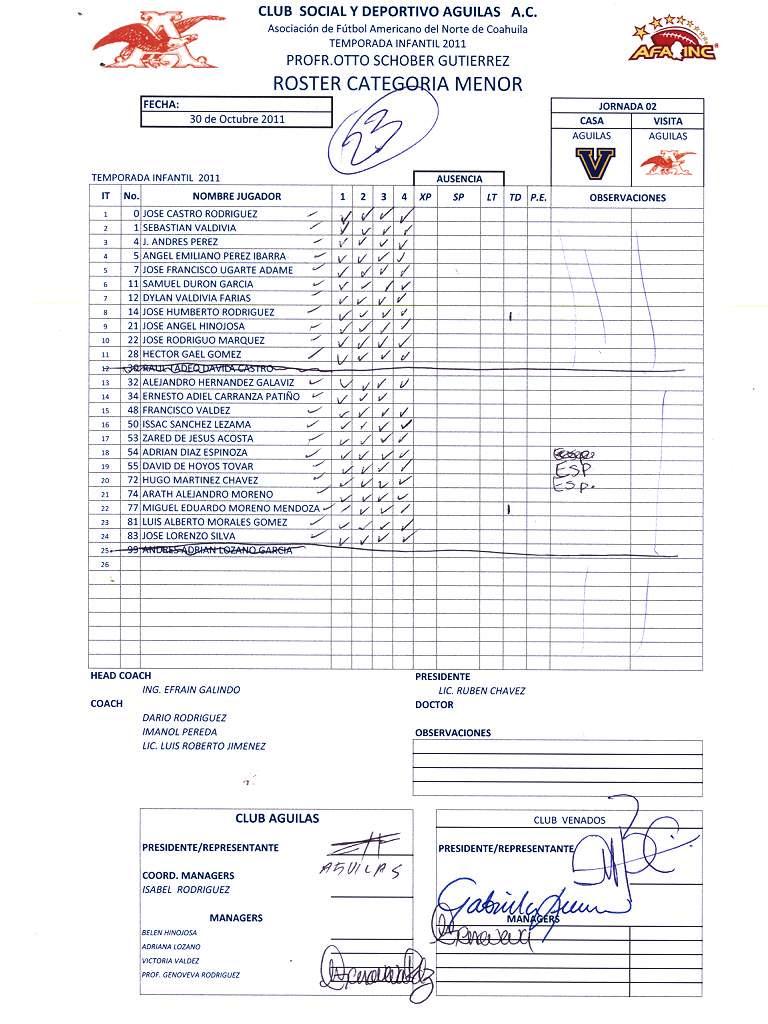 CLUB SOCIAL Y DEPORTIVO AGUILAS A.C.
Asociación de Fútbol Americano del Norte de Coahuila
TEMPORADA INFANTIL 2011
PROFR.OTTO SCHOBER GUTIERREZ
ROSTER CATEGORIA MENOR
AFAINC
FECHA:
30 de Octubre 2011
23
JORNADA 02
CASA VISITA
AGUILAS AGUILAS
V
TEMPORADA INFANTIL 2011 AUSENCIA
IT No. NOMBRE JUGADOR 1 2 3 4 XP SP LT TD P.E. OBSERVACIONES
1 0 JOSE CASTRO RODRIGUEZ ✓ ✓ ✓ ✓ ✓
2 1 SEBASTIAN VALDIVIA ✓ ✓ ✓ ✓ ✓
3 4 J. ANDRES PEREZ ✓ ✓ ✓ ✓ ✓
4 5 ANGEL EMILIANO PEREZ IBARRA ✓ ✓ ✓ ✓ ✓
5 7 JOSE FRANCISCO UGARTE ADAME ✓ ✓ ✓ ✓ ✓
6 11 SAMUEL DURON GARCIA ✓ ✓ ✓ ✓ ✓
7 12 DYLAN VALDIVIA FARIAS ✓ ✓ ✓ ✓ ✓
8 14 JOSE HUMBERTO RODRIGUEZ ✓ ✓ ✓ ✓ ✓ I
9 21 JOSE ANGEL HINOJOSA ✓ ✓ ✓ ✓ ✓
10 22 JOSE RODRIGUO MARQUEZ ✓ ✓ ✓ ✓ ✓
11 28 HECTOR GAEL GOMEZ ✓ ✓ ✓ ✓ ✓
12 30 RAUL TADEO DAVILA CASTRO
13 32 ALEJANDRO HERNANDEZ GALAVIZ ✓ ✓ ✓ ✓ ✓
14 34 ERNESTO ADIEL CARRANZA PATIÑO ✓ ✓ ✓ ✓
15 48 FRANCISCO VALDEZ ✓ ✓ ✓ ✓ ✓
16 50 ISSAC SANCHEZ LEZAMA ✓ ✓ ✓ ✓ ✓
17 53 ZARED DE JESUS ACOSTA ✓ ✓ ✓ ✓ ✓
18 54 ADRIAN DIAZ ESPINOZA ✓ ✓ ✓ ✓ ✓
19 55 DAVID DE HOYOS TOVAR ✓ ✓ ✓ ✓ ✓ ESP
20 72 HUGO MARTINEZ CHAVEZ ✓ ✓ ✓ ✓ ✓ ESP.
21 74 ARATH ALEJANDRO MORENO ✓ ✓ ✓ ✓ ✓
22 77 MIGUEL EDUARDO MORENO MENDOZA ✓ ✓ ✓ ✓ ✓ I
23 81 LUIS ALBERTO MORALES GOMEZ ✓ ✓ ✓ ✓ ✓
24 83 JOSE LORENZO SILVA ✓ ✓ ✓ ✓ ✓
25 99 ANDRES ADRIAN LOZANO GARCIA
26
HEAD COACH PRESIDENTE
ING. EFRAIN GALINDO LIC. RUBEN CHAVEZ
COACH DOCTOR
DARIO RODRIGUEZ
IMANOL PEREDA OBSERVACIONES
LIC. LUIS ROBERTO JIMENEZ
CLUB AGUILAS
PRESIDENTE/REPRESENTANTE
AGUILAS
COORD. MANAGERS
ISABEL RODRIGUEZ
MANAGERS
BELEN HINOJOSA
ADRIANA LOZANO
VICTORIA VALDEZ
PROF. GENOVEVA RODRIGUEZ
Genoveva
CLUB VENADOS
PRESIDENTE/REPRESENTANTE
Gabriela
MANAGERS
Genoveva